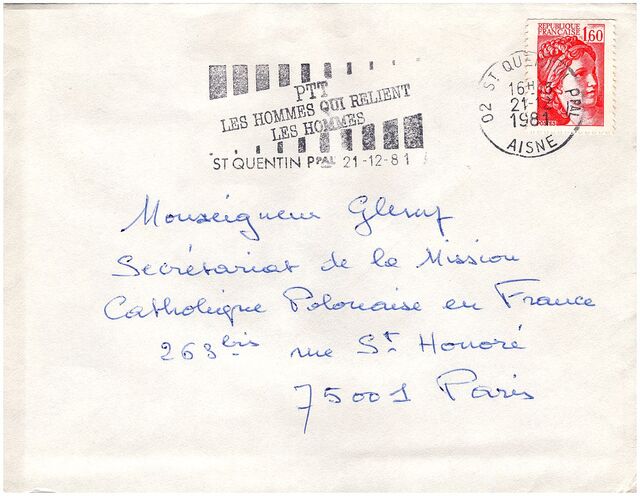 REPUBLIQUE
FRANÇAISE 1,60
PTT
LES HOMMES QUI RELIENT
LES HOMMES
ST QUENTIN PPAL 21-12-81
02 ST QUENTIN PPAL
16H
21-12
1981
AISNE
Monseigneur
Secrétariat de la Mission
Catholique Polonaise en France
263bis rue St Honoré
75001 Paris